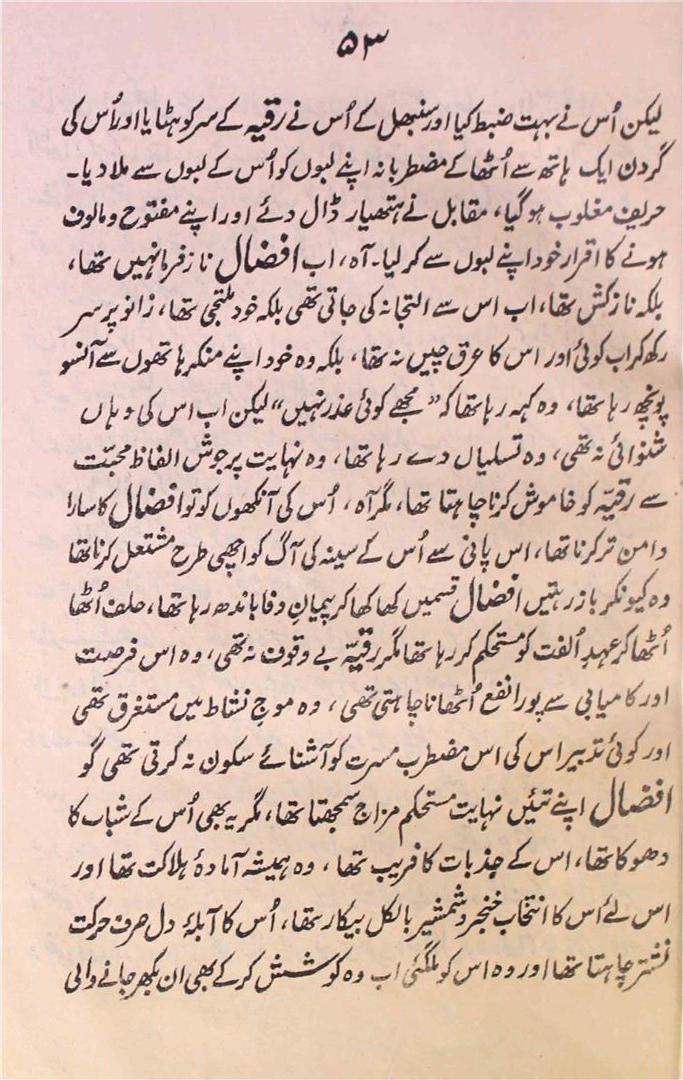 ۵۳
لیکن اُس نے بہت ضبط کیا اور سنبھل کے اُس نے رقیہ کے سر کو ہٹایا اور اُس کی
گردن ایک ہاتھ سے اُٹھا کے مضطربانہ اپنے لبوں کو اُس کے لبوں سے ملا دیا۔
حریف مغلوب ہو گیا، مقابل نے ہتھیار ڈال دئے اور اپنے مفتوح و مالوف
ہونے کا اقرار خود اپنے لبوں سے کر لیا۔ آہ، اب افضال ناز فرما نہیں تھا،
بلکہ ناز کش تھا، اب اس سے التجا نہ کی جاتی تھی بلکہ خود ملتجی تھا، زانو پر سر
رکھ کر اب کوئی اور اس کا عرق چیں نہ تھا، بلکہ وہ خود اپنے منکر ہاتھوں سے آنسو
پونچھ رہا تھا، وہ کہہ رہا تھا کہ ”مجھے کوئی عذر نہیں“ لیکن اب اس کی وہاں
شنوائی نہ تھی، وہ تسلیاں دے رہا تھا، وہ نہایت پرجوش الفاظ محبّت
سے رقیّہ کو خاموش کرنا چاہتا تھا، مگر آہ، اُس کی آنکھوں کو تو افضال کا سارا
دامن تر کرنا تھا، اس پانی سے اُس کے سینہ کی آگ کو اچھی طرح مشتعل کرنا تھا
وہ کیونکر باز رہتیں افضال قسمیں کھا کھا کر پیمانِ وفا باندھ رہا تھا، حلف اُٹھا
اُٹھا کر عہدِ اُلفت کو مستحکم کر رہا تھا مگر رقیّہ بے وقوف نہ تھی، وہ اس فرصت
اور کامیابی سے پورا نفع اُٹھانا چاہتی تھی، وہ موجِ نشاط میں مستغرق تھی
اور کوئی تدبیر اس کی اس مضطرب مسرت کو آشنائے سکون نہ کرتی تھی گو
افضال اپنے تئیں نہایت مستحکم مزاج سمجھتا تھا، مگر یہ بھی اُس کے شباب کا
دھوکا تھا، اس کے جذبات کا فریب تھا، وہ ہمیشہ آمادۂ ہلاکت تھا اور
اس لئے اُس کا انتخاب خنجر و شمشیر بالکل بیکار تھا، اُس کا آبلۂ دل صرف حرکت
نشتر چاہتا تھا اور وہ اس کو ملگئی اب وہ کوشش کرکے بھی ان بکھر جانے والی